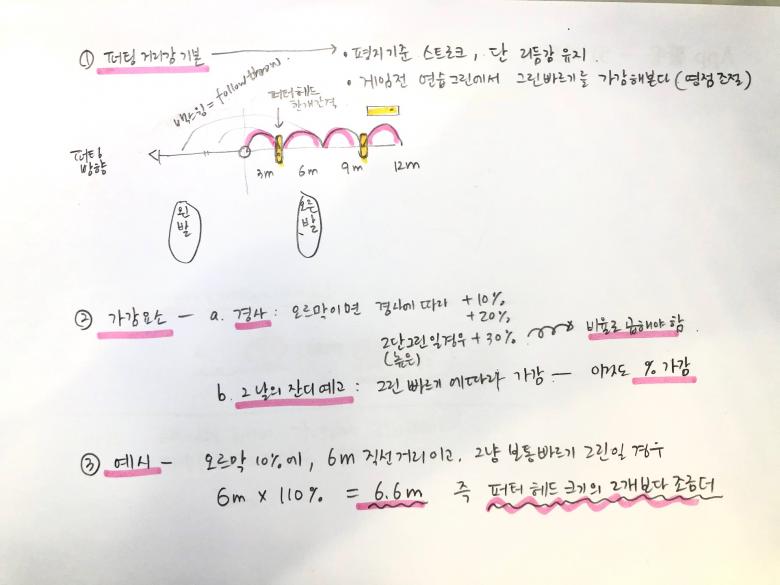 ① 퍼팅 거리감 기본 → • 평지기준 스트로크, 단 리듬감 유지.
• 게임전 연습그린에서 그린빠르기를 가감해본다 (영점조절)
백스윙 = follow throw.
퍼터헤드
한개간격
퍼팅
방향
3m 6m 9m 12m
왼
발
오른
발
② 가감요소 - a. 경사 : 오르막이면 경사에 따라 +10%,
+20%
2단그린일경우 +30% 비율로 곱해야 함.
(높은)
b. 그날의 잔디예고 : 그린 빠르기에따라 가감 - 이것도 % 가감
③ 예시 - 오르막 10%에, 6m 직선거리이고, 그냥 보통빠르기 그린일 경우
6m × 110% = 6.6m 즉 퍼터 헤드 크기의 2개보다 조금더